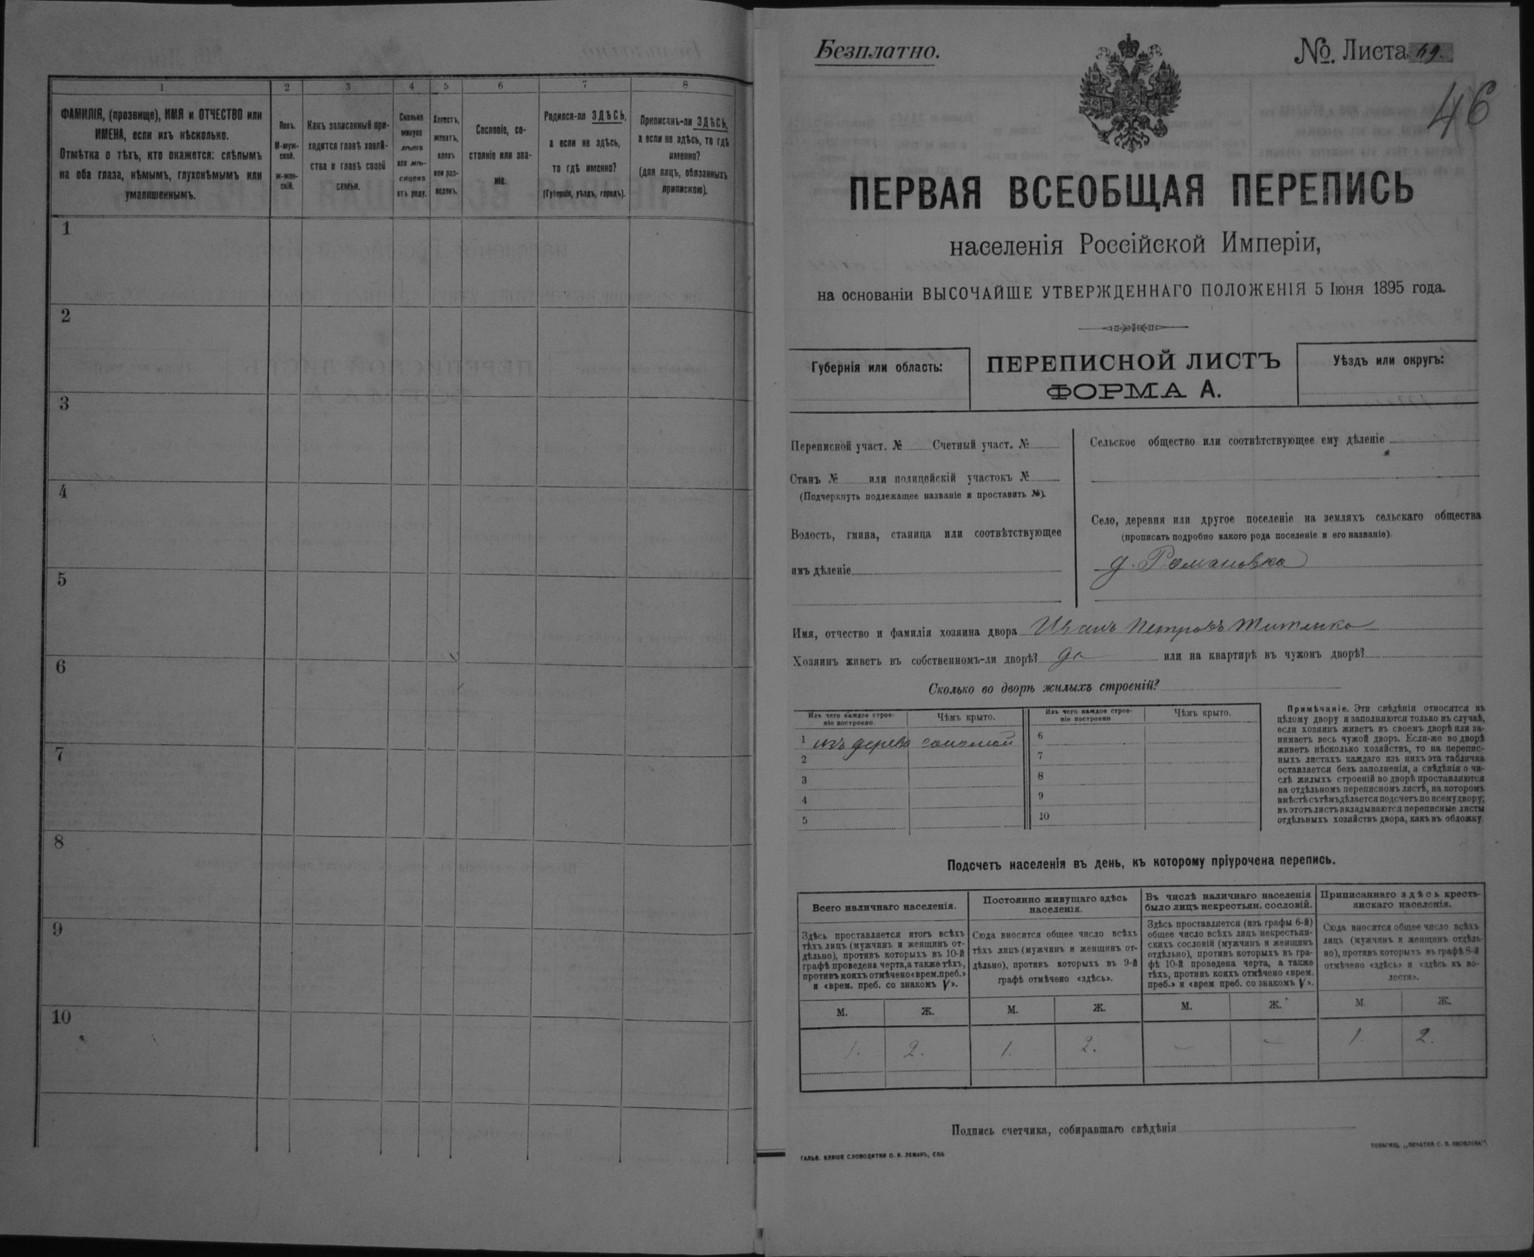 1 2 3 4 5 6 7 8
ФАМИЛІЯ, (прозвище), ИМЯ и ОТЧЕСТВО или
ИМЕНА, если ихъ нѣсколько.
Отмѣтка о тѣхъ, кто окажется: слѣпымъ
на оба глаза, нѣмымъ, глухонѣмымъ или
умалишеннымъ.
Полъ.
М-муж-
ской.
Ж-жен-
скій.
Какъ записанный при-
ходится главѣ хозяй-
ства и главѣ своей
семьи.
Сколько
минуло
лѣтъ
или мѣ-
сяцевъ
отъ роду.
Холостъ,
женатъ,
вдовъ
или раз-
веденъ.
Сословіе, со-
стояніе или зва-
ніе.
Родился-ли ЗДѢСЬ,
а если не здѣсь,
то гдѣ именно?
(Губернія, уѣздъ, городъ).
Приписанъ-ли ЗДѢСЬ,
а если не здѣсь, то гдѣ
именно?
(для лицъ, обязанныхъ
припискою).
1
2
3
4
5
6
7
8
9
10
Безплатно.
№ Листа 49.
46
ПЕРВАЯ ВСЕОБЩАЯ ПЕРЕПИСЬ
населенія Россійской Имперіи,
на основаніи ВЫСОЧАЙШЕ УТВЕРЖДЕННАГО ПОЛОЖЕНІЯ 5 Іюня 1895 года.
Губернія или область:
ПЕРЕПИСНОЙ ЛИСТЪ
ФОРМА А.
Уѣздъ или округъ:
Переписной участ. № Счетный участ. №
Станъ № или полицейскій участокъ №
(Подчеркнуть подлежащее названіе и проставить №).
Волость, гмина, станица или соотвѣтствующее
имъ дѣленіе
Сельское общество или соотвѣтствующее ему дѣленіе
Село, деревня или другое поселеніе на земляхъ сельскаго общества
(прописать подробно какого рода поселеніе и его названіе)
д. Романовка
Имя, отчество и фамилія хозяина двора Иванъ Петровъ
Хозяинъ живетъ въ собственномъ-ли дворѣ? да или на квартирѣ въ чужомъ дворѣ?
Сколько во дворѣ жилыхъ строеній?
Изъ чего каждое строе-
ніе построено.
Чѣмъ крыто.
Изъ чего каждое строе-
ніе построено
Чѣмъ крыто.
1 изъ дерева соломой
2
3
4
5
6
7
8
9
10
Примѣчаніе. Эти свѣдѣнія относятся къ
цѣлому двору и заполняются только въ случаѣ,
если хозяинъ живетъ въ своемъ дворѣ или за-
нимаетъ весь чужой дворъ. Если-же во дворѣ
живетъ нѣсколько хозяйствъ, то на перепис-
ныхъ листахъ каждаго изъ нихъ эта табличка
оставляется безъ заполненія, а свѣдѣнія о чи-
слѣ жилыхъ строеній во дворѣ проставляются
на отдѣльномъ переписномъ листѣ, на которомъ
вмѣстѣ съ тѣмъ дѣлается подсчетъ по всему двору;
въ этотъ листъ вкладываются переписные листы
отдѣльныхъ хозяйствъ двора, какъ въ обложку
Подсчетъ населенія въ день, къ которому пріурочена перепись.
Всего наличнаго населенія.
Здѣсь проставляется итогъ всѣхъ
тѣхъ лицъ (мужчинъ и женщинъ от-
дѣльно), противъ которыхъ въ 10-й
графѣ проведена черта, а также тѣхъ,
противъ коихъ отмѣчено «врем. преб.»
и «врем. преб. со знакомъ V».
Постоянно живущаго здѣсь
населенія.
Сюда вносится общее число всѣхъ
тѣхъ лицъ (мужчинъ и женщинъ от-
дѣльно), противъ которыхъ въ 9-й
графѣ отмѣчено «здѣсь».
Въ числѣ наличнаго населенія
было лицъ некрестьян. сословій.
Здѣсь проставляется (изъ графы 6-й)
общее число всѣхъ лицъ некрестьян-
скихъ сословій (мужчинъ и женщинъ
отдѣльно), противъ которыхъ въ гра-
фѣ 10-й проведена черта, а также
тѣхъ, противъ коихъ отмѣчено «врем.
преб.» и «врем преб. со знакомъ V».
Приписаннаго здѣсь кресть-
янскаго населенія.
Сюда вносится общее число всѣхъ
лицъ (мужчинъ и женщинъ отдѣль-
но), противъ которыхъ въ графѣ 8-й
отмѣчено «здѣсь» и «здѣсь въ во-
лости».
М. Ж. М. Ж. М. Ж. М. Ж.
1. 2. 1. 2. - - 1. 2.
Подпись счетчика, собиравшаго свѣдѣнія